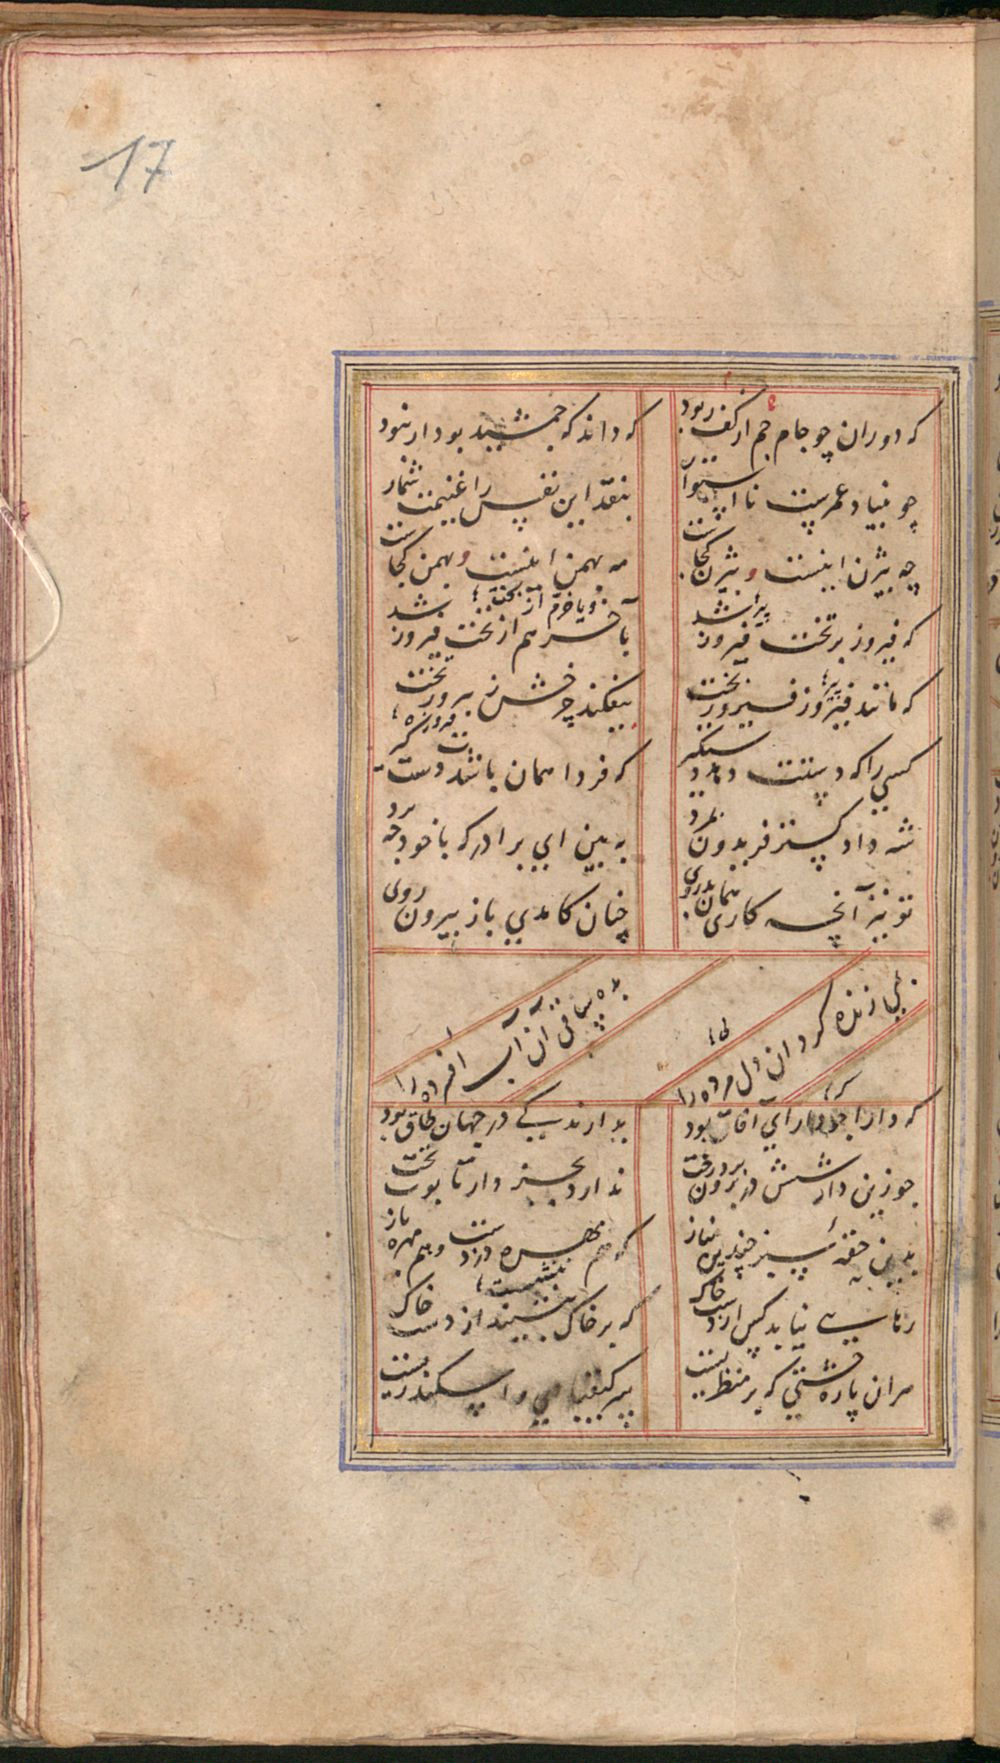 17
که دوران چو جام جم از کف ربود
که داند که جمشید بود ار نبود
چو بنیاد عمرست نا استوار
بنقد این نفس را غنیمت شمار
چه بیژن اینست و بیژن کجاست
مه بهمن اینست و بهمن کجاست
که فیروز بر تخت فیروز شد
بآخر هم از تخت فیروز شد
که مانند فیروز فیروز بخت
بیفکند چرخش ز تخت
کسی را که دستت دهد دستگیر
که فردا همان باشدت دستگیر
شه دادگستر فریدون گرد
به بین ای برادر که با خود چه برد
تو نیز آنچه کاری همان بدروی
چنان کامدی باز بیرون روی
بده ساقی آن آب افسرده را
بمی زنده گردان دل مرده را
که دارا که دارای آفاق بود
بدارندگی در جهان طاق بود
چو زین دار شش در برون برد رخت
ندارد بجز دار تابوت تخت
بدین حقه سبز چندین مناز
که هم مهره دزدست و هم مهره باز
رهایی نیابد کس از دست خاک
که بر خاک بنشیند از دست خاک
هر آن پاره خشتی که بر منظریست
سر کیقبادی و اسکندریست